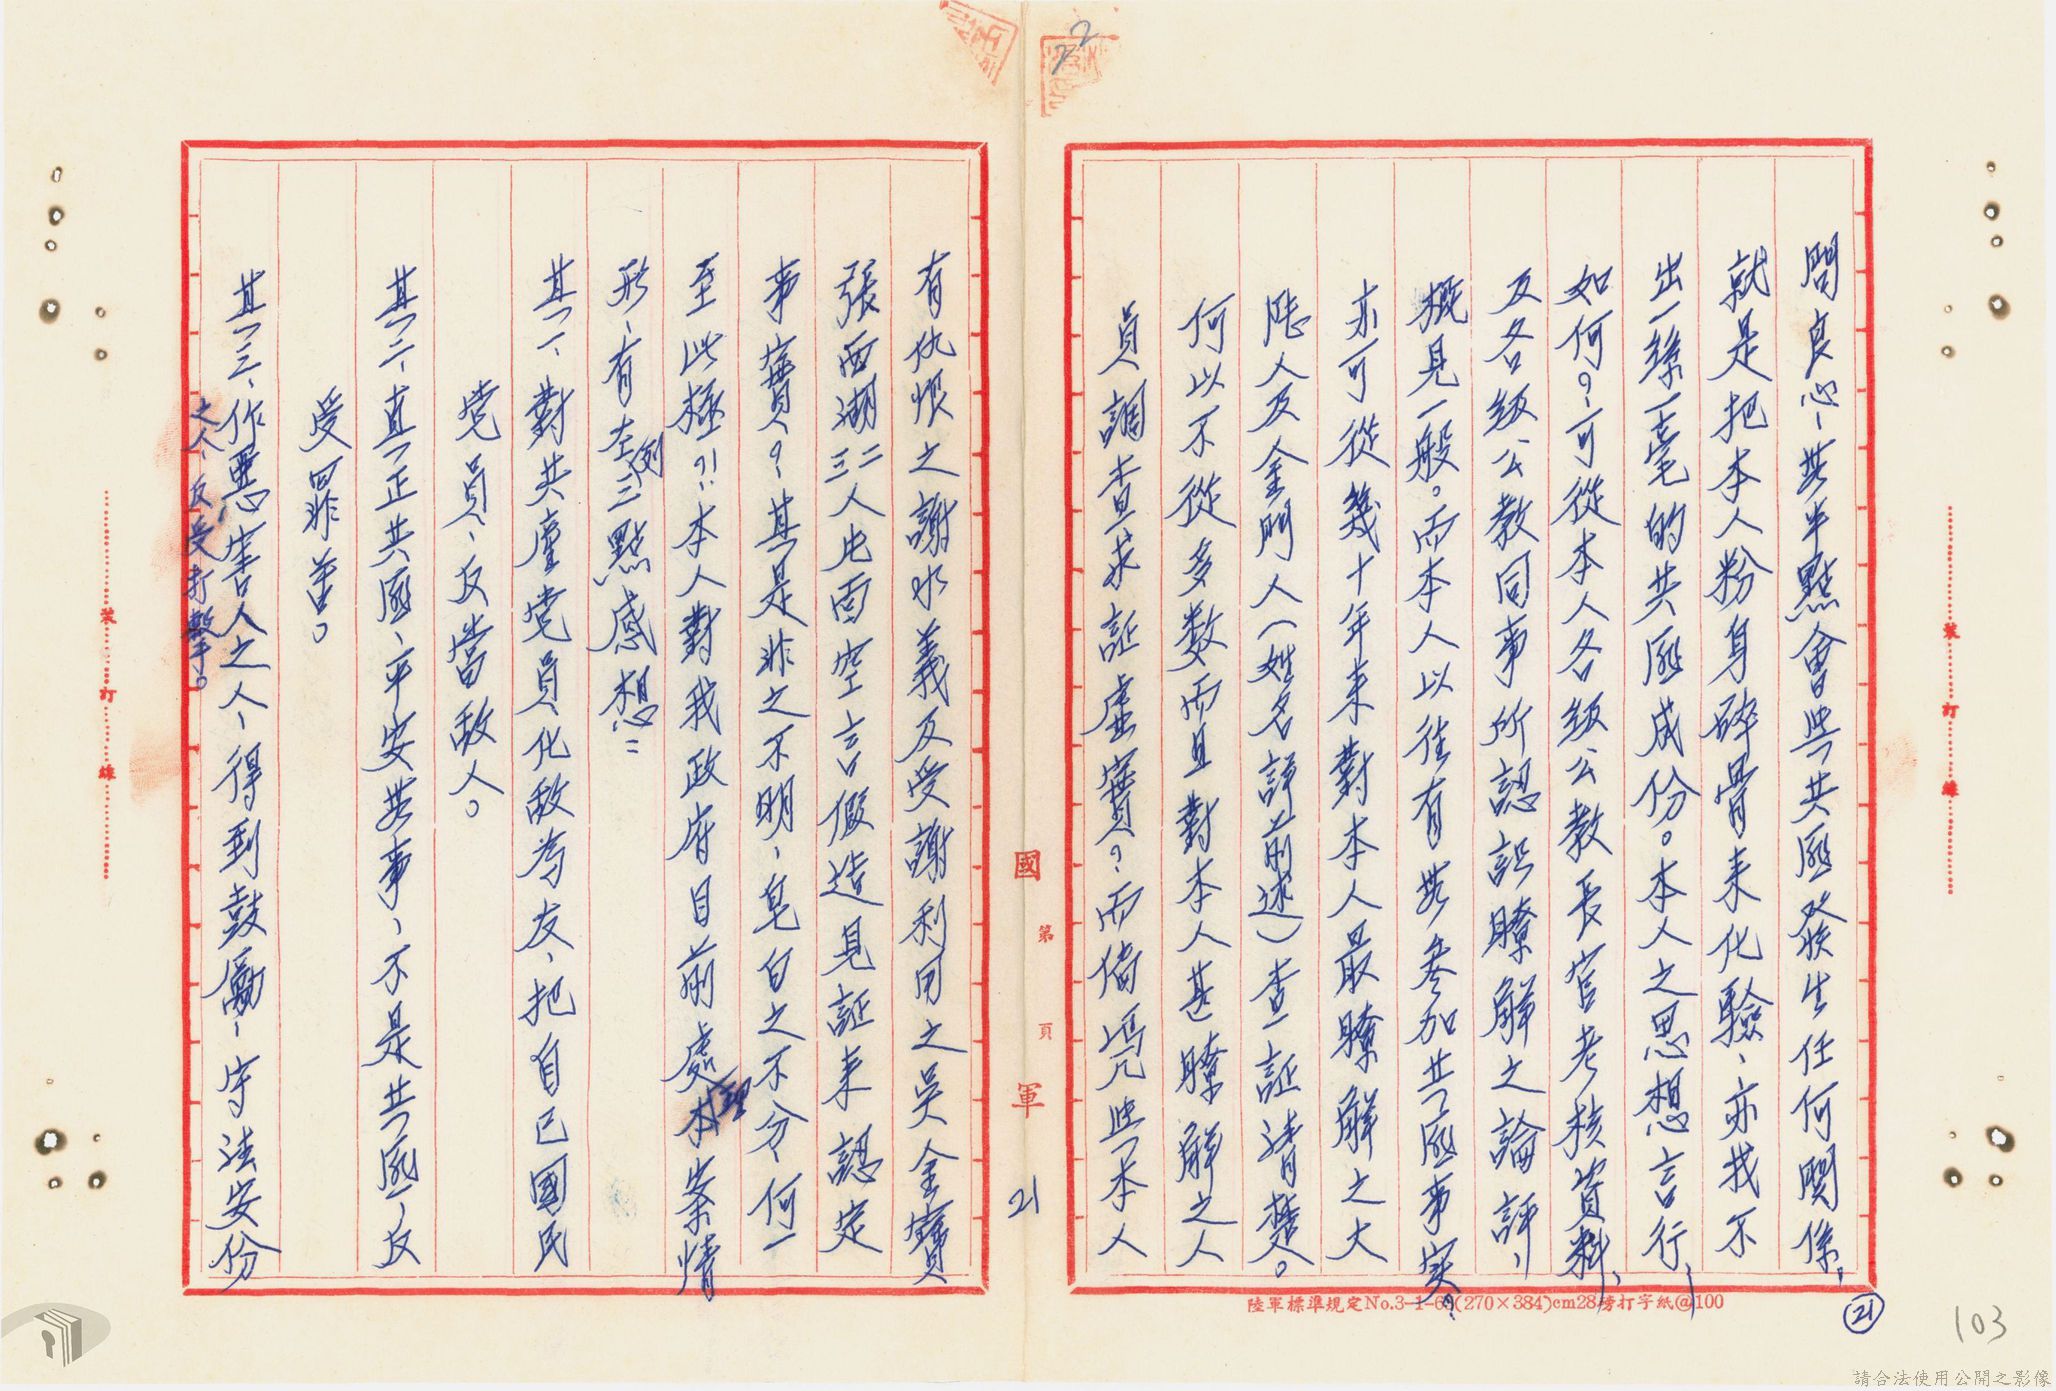 問良心、無半點會與共匪發生任何関係，
就是把本人粉身碎骨来化驗、亦找不
出一絲一毫的共匪成份。本人之思想言行，
如何？可從本人各級公教長官考核資料，
及各級公教同事所認識瞭解之論評，
概見一般。而本人以往有無參加共匪事实？
亦可從幾十年来對本人最瞭解之大
陸人及金門人（姓名詳前述）查証清楚。
何以不從多数而且對本人甚瞭解之人
員調查求証虛實？而偏憑與本人
有仇恨之謝水義及受謝利用之吳金寶
張西湖二三人片面空言假造見証来認定
事實？其是非之不明、皂白之不分、何一
至此極？！本人對我政府目前處理本案情
形、有左列三點感想：
其一、對共產党員、化敵為友、把自己國民
党員、反當敵人。
其二、真正共匪、平安無事、不是共匪、反
受罪苦。
其三、作惡害人之人、得到鼓勵、守法安份
之人、反受打擊。
國
軍
第
頁
21
裝
訂
線
裝
訂
線
陸軍標準規定No.3-1-6(270×384)cm28磅打字紙@100
21
103
22
請合法使用公開之影像